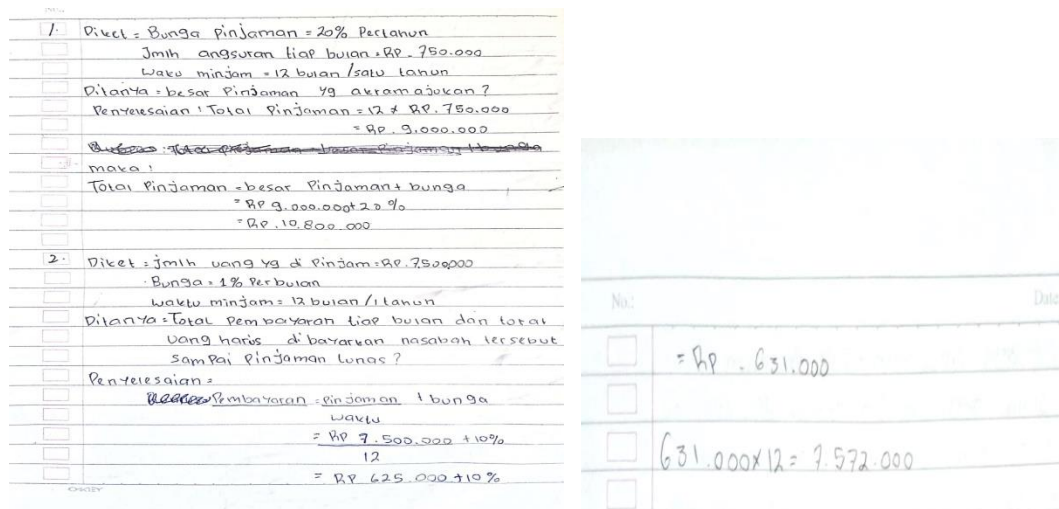 1. Diket = Bunga Pinjaman = 20% Pertahun
Jmlh angsuran tiap bulan = RP. 750.000
Waktu minjam = 12 bulan / satu tahun
Ditanya = besar Pinjaman yg akramajukan?
Penyelesaian : Total Pinjaman = 12 x RP. 750.000
= RP. 9.000.000
maka :
Total Pinjaman = besar Pinjaman + bunga
= RP 9.000.000 + 20%
= RP. 10.800.000
2. Diket = jmlh uang yg di Pinjam = RP. 7.500000
Bunga = 1% Perbulan
waktu minjam = 12 bulan / 1 tahun
Ditanya = Total Pembayaran tiap bulan dan total
uang harus dibayarkan nasabah tersebut
sampai Pinjaman lunas?
Penyelesaian =
Pembayaran = Pinjaman + bunga
waktu
= RP 7.500.000 + 10%
12
= RP 625.000 + 10%
No.:
Date
= Rp. 631.000
631.000 x 12 = 7.572.000